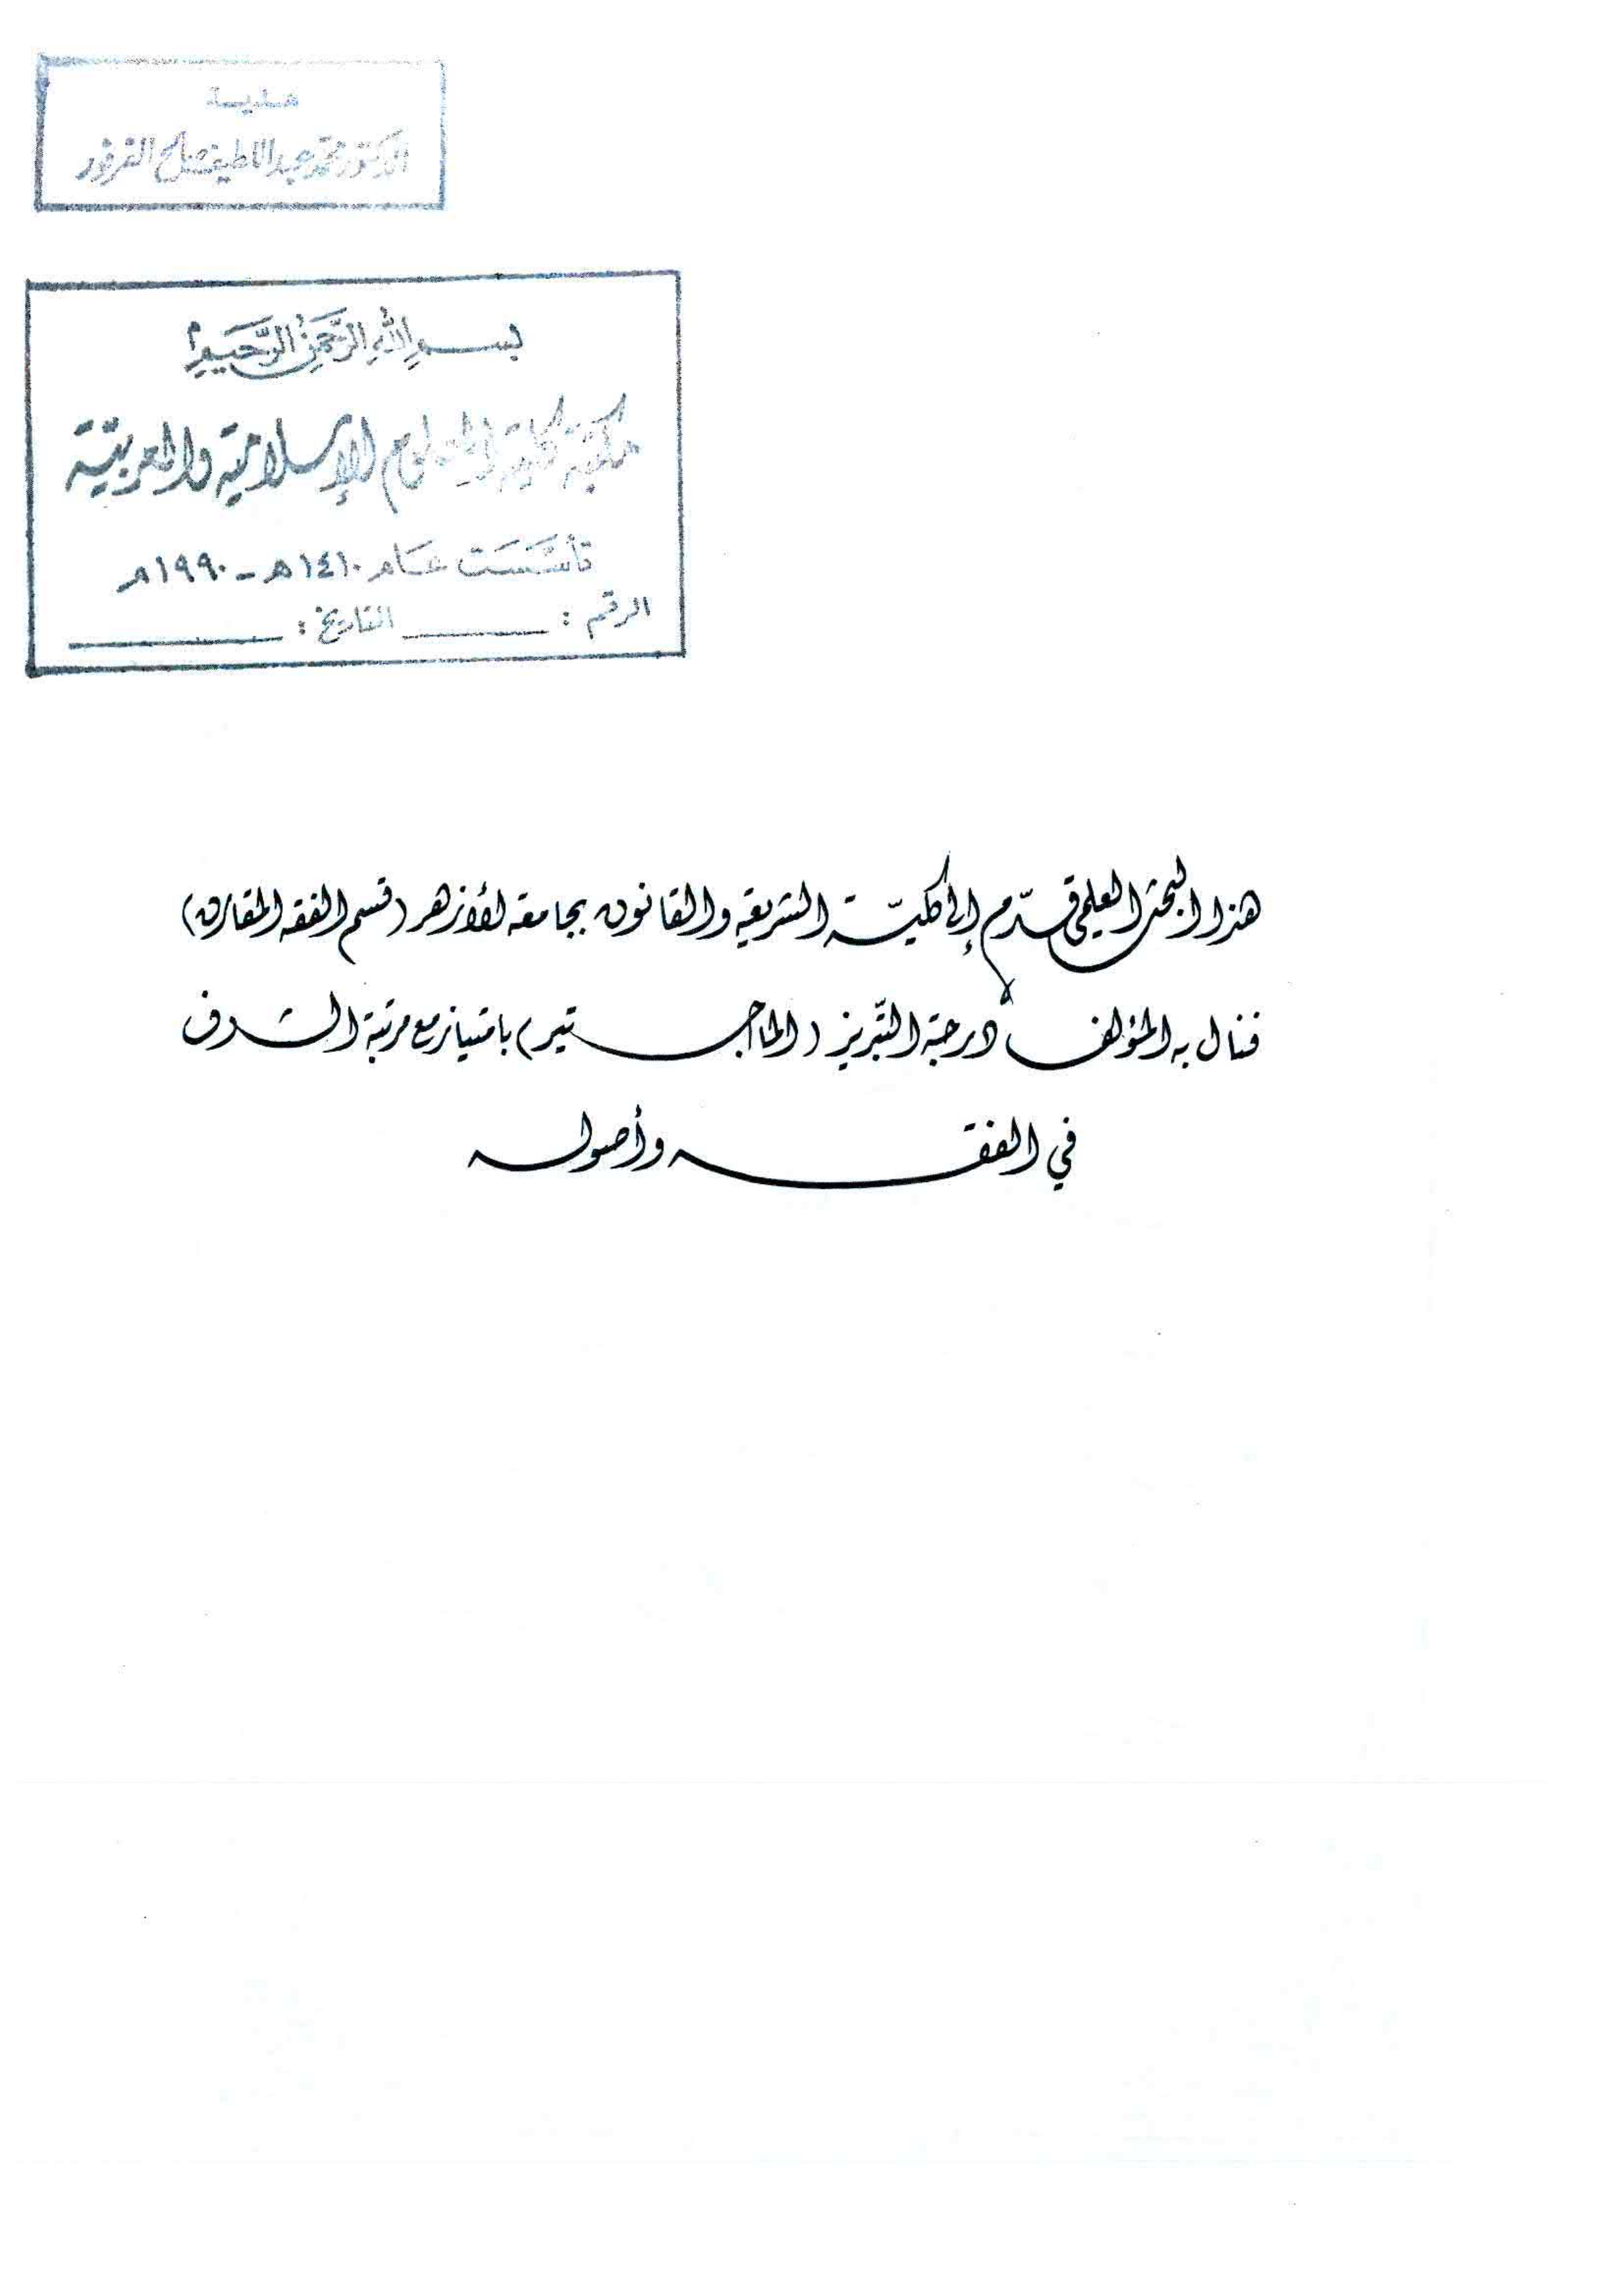 هدية
الدكتور محمد عبد اللطيف صالح الفرفور
بسم الله الرحمن الرحيم
مكتبة كلية العلوم الإسلامية والعربية
تأسست عام ١٤١٠هـ - ١٩٩٠م
الرقم : ________ التاريخ : ________
هذا البحث العلمي قدّم إلى كليّة الشريعة والقانون بجامعة الأزهر (قسم الفقه المقارن)
فنال به المؤلف درجة التّبريز (الماجستير) بامتياز مع مرتبة الشرف
في الفقه وأصوله